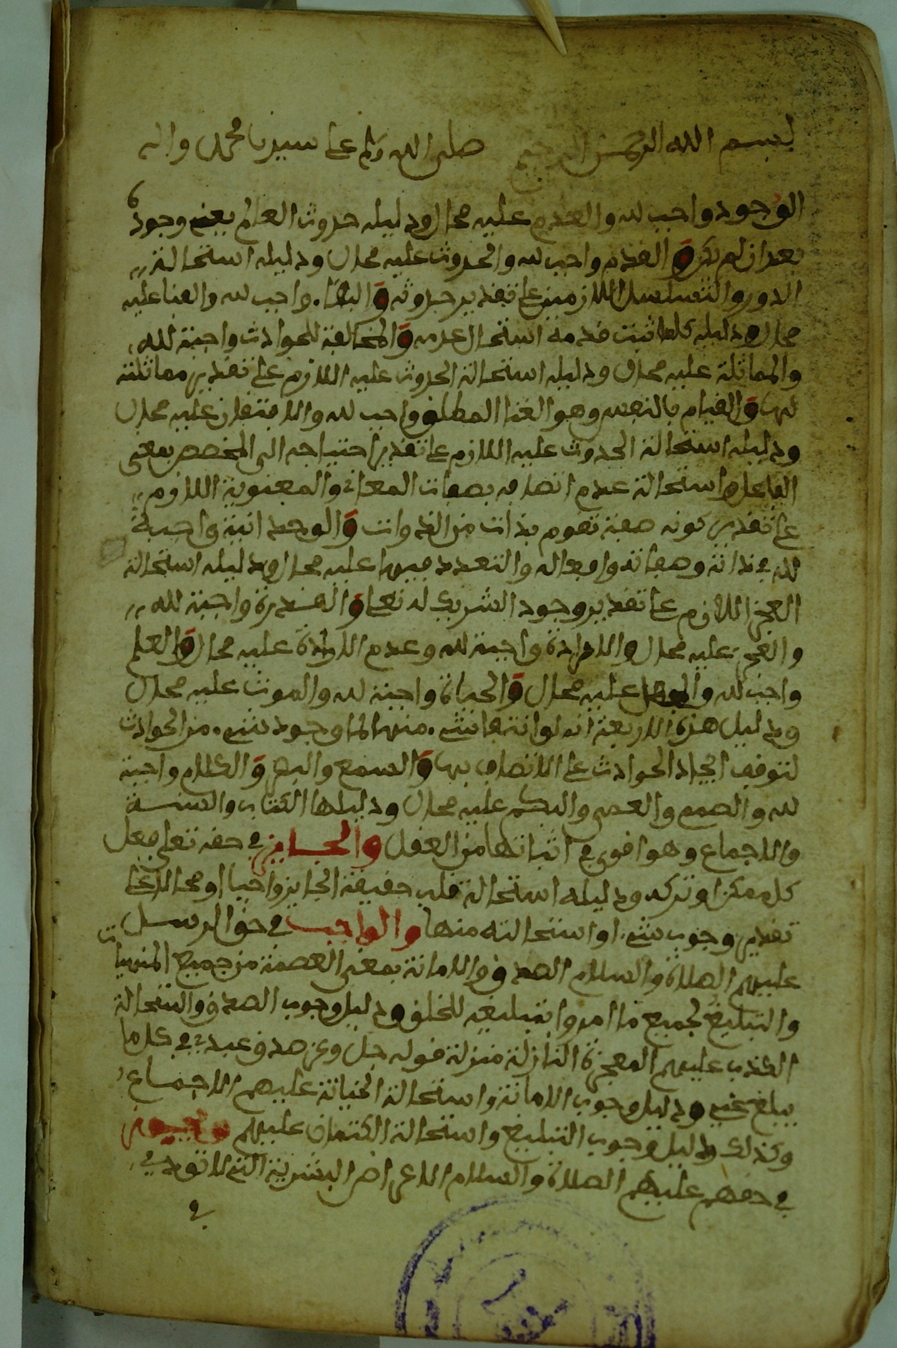 بسم الله الرحمن الرحيم صلى الله وسلم على سيدنا محمد واله
الوجود واجب لله والعدم عليه محال ودليله حدوث العالم يعني وجوده
بعد ان لم يكن والقدم واجب لله والحدوث عليه محال ودليله استحالة
الدور والتسلسل اللازمين على تقدير حدوثه والبقاء واجب لله والفنا عليه
محال ودليله كلما ثبت قدمه استحال عدمه والمخالفة للحوادث واجبة لله
والمماثلة عليه محال ودليله استحالة الحدوث عليه اللازم على تقدير مماثلته
لها والقيام بالنفس وهو الغنا المطلق واجب لله والافتقار عليه محال
ودليله استحالة الحدوث عليه اللازم على تقدير احتياجه الى المخصص بمعنى
الفاعل واستحالة عدم اتصافه بصفات المعاني والمعنوية اللازم
على تقدير كونه صفة تقوم بذات من الذوات والوحدانية واجبة
لله في ذاته وصفاته وافعاله والتعدد فيها عليه محال ودليله استحالة
العجز اللازم على تقدير وجود الشريك له تعلى والقدرة واجبة لله
والعجز عليه محال والارادة واجبة لله وعدم الارادة عليه محال والعلم
واجب لله والجهل عليه محال والحياة واجبة لله والموت عليه محال
ودليل هذه الاربعة انه لو انتفا شيء منها لما وجود شيء من الحوادث
لتوقف ايجاد الحوادث على الاتصاف بها والسمع والبصر والكلام واجبة
لله والصمم والعمى والبكم عليه محال ودليلها الكتاب والسنة
والاجماع وهو اقوى في اثباتها من العقل والجايز في حقه تعلى فعل
كل ممكن او تركه ودليله استحالة قلب حقيقة الجايز واجبا او محالا على
تقدير وجوب شيء او استحالته منها والواجب في حق الرسل
عليهم الصلاة والسلام الصدق والامانة بمعنى العصمة من جميع المنهيات
والتبليغ لجميع ما امروا بتبليغه للخلق ودليل وجوب الصدق واستحالة
الكذب عليهم المعجزة النازلة منزلة قوله جل وعز صدق عبدي في كل ما
يبلغ عني ودليل وجوب الامانة واستحالة الخيانة عليهم الاجماع
وكذلك دليل وجوب التبليغ واستحالة الكتمان عليهم ويجوز
في حقهم عليهم الصلاة والسلام الاعراض البشرية التي لا تودي